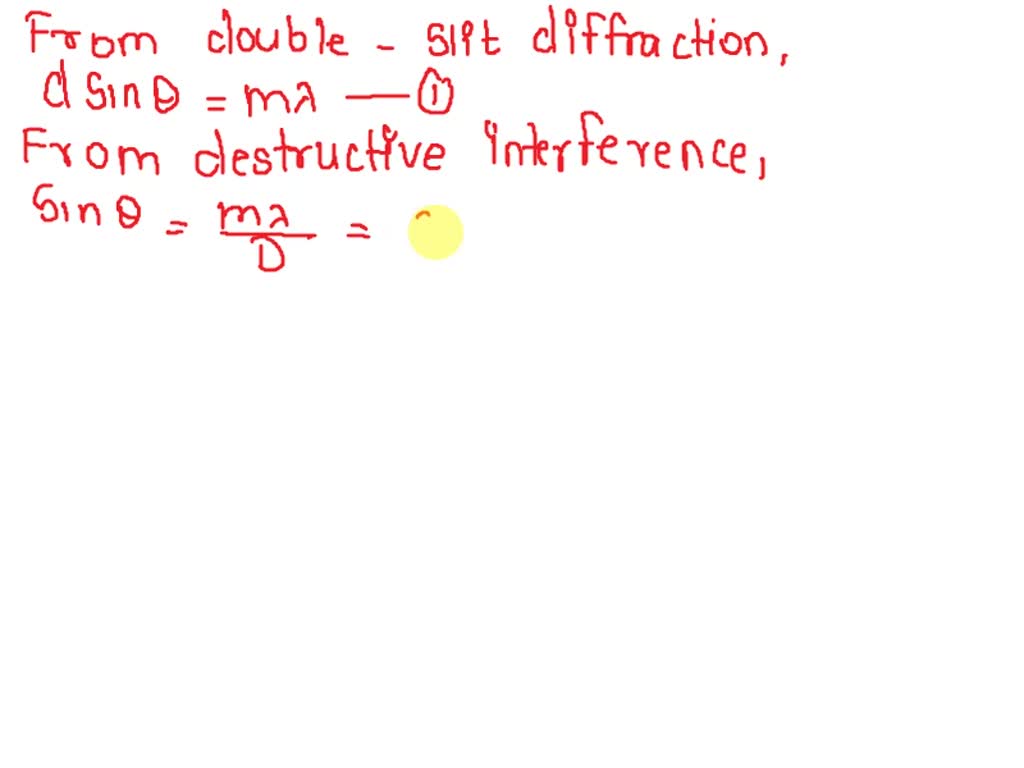 From double - slit diffraction,
d sinθ = mλ — ①
From destructive interference,
Sin θ = mλ/D =